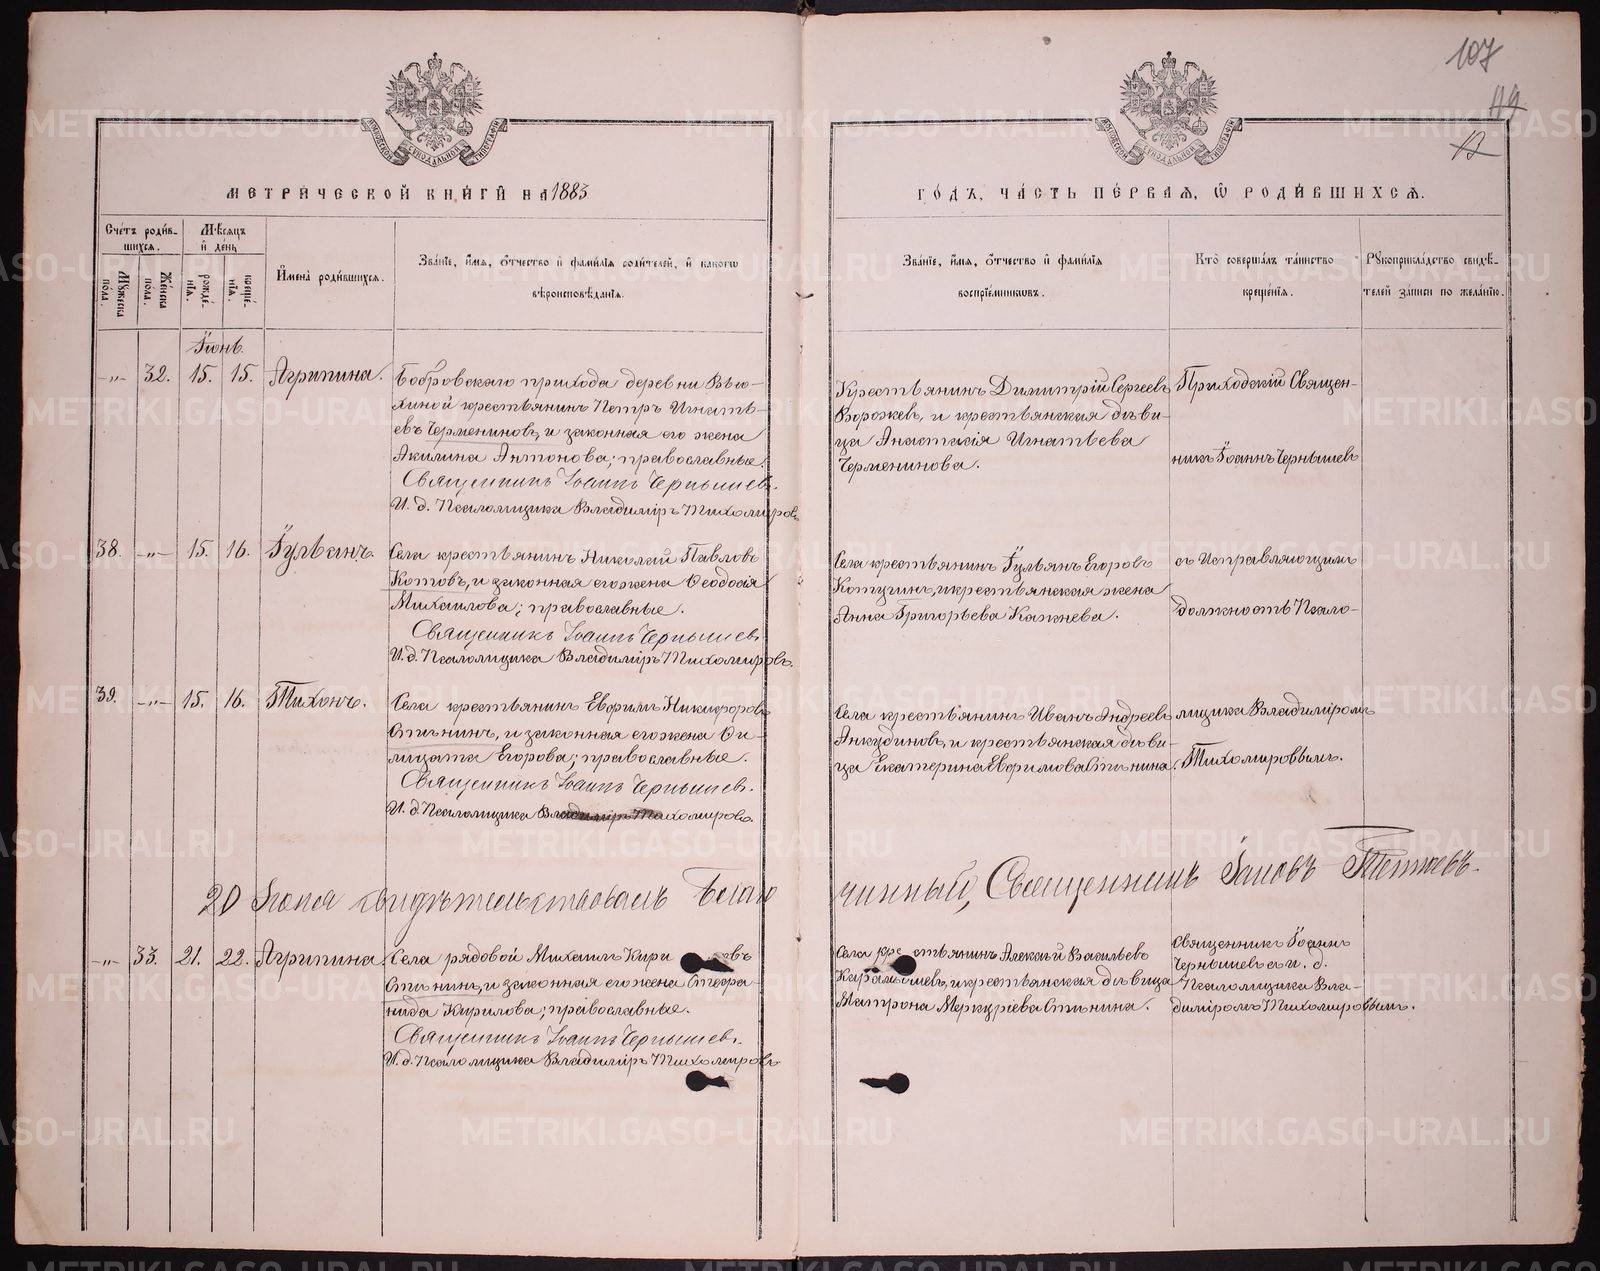 107
119
13
МОСКОВСКОЙ СѴНОДАЛЬНОЙ ТИПОГРАФІИ
МОСКОВСКОЙ СѴНОДАЛЬНОЙ ТИПОГРАФІИ
МЕТРИЧЕСКОЙ КНИГИ НА 1883
ГОДЪ, ЧАСТЬ ПЕРВАЯ, Ѡ РОДИВШИХСЯ.
Счетъ родив-
шихся.
Мѣсяцъ
и день
Мужеска
пола.
Женска
пола.
рожде-
нїя.
креще-
нїя.
Имена родившихся.
Званїе, имя, отчество и фамилїя родителей, и какогω
вѣроисповѣданїя.
Званїе, имя, отчество и фамилїя
воспрїемниковъ.
Кто совершалъ таинство
крещенїя.
Рукоприкладство свидѣ-
телей записи по желанїю.
Іюнь.
-„- 32. 15. 15. Агрипина.
Бобровскаго прихода деревни Вью-
хиной крестьянинъ Петръ Игнать-
евъ Черменинов, и законная его жена
Акилина Антонова; православные.
Священникъ Іоаннъ Чернышев.
И. д. Псаломщика Владиміръ Тихомировъ
Крестьянинъ Димитрій Сергеев
Ворожев, и крестьянская дѣви-
ца Анастасія Игнатьева
Черменинова.
Приходскій Священ-
никъ Іоаннъ Чернышев
38. -„- 15. 16. Іульянъ.
Села крестьянинъ Николай Павловъ
Котовъ, и законная его жена Ѳеодосія
Михаилова; православные.
Священникъ Іоаннъ Чернышев.
И. д. Псаломщика Владиміръ Тихомировъ.
Села крестьянинъ Іульянъ Егоровъ
Котугинъ, и крестьянская жена
Анна Григорьева Кажнева.
съ Исправляющимъ
должность Псало-
39. -„- 15. 16. Тихонъ.
Села крестьянинъ Евфимъ Никифоровъ
Стѣнинъ, и законная его жена Ѳи-
лицата Егорова; православные.
Священникъ Іоаннъ Чернышев.
И. д. Псаломщика Владиміръ Тихомировъ.
Села крестьянинъ Иванъ Андреевъ
Анкудинов, и крестьянская дѣви-
ца Екатерина Евфимова Стѣнина.
мщика Владиміромъ
Тихомировымъ.
20 Іюня свидѣтельствовалъ Благо
чинный, Священникъ Іаковъ
-„- 33. 21. 22. Агрипина.
Села рядовой Михаилъ Кири овъ
Стѣнинъ, и законная его жена Стефа-
нида Кирилова; православные.
Священникъ Іоаннъ Чернышев.
И. д. Псаломщика Владиміръ Тихомировъ.
Села крестьянинъ Алексѣй Васильевъ
Карамышев, и крестьянская дѣвица
Матрона Меркуріева Стѣнина.
Священникъ Іоаннъ
Чернышевъ и. д.
Псаломщика Вла-
диміромъ Тихомировымъ.
METRIKI.GASO-URAL.RU